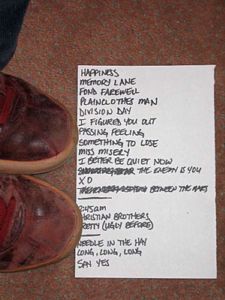 HAPPINESS
MEMORY LANE
FOND FAREWELL
PLAINCLOTHES MAN
DIVISION DAY
I FIGURED YOU OUT
PASSING FEELING
SOMETHING TO LOSE
MISS MISERY
I BETTER BE QUIET NOW
THE ENEMY IS YOU
XO
BETWEEN THE BARS
2:45am
CHRISTIAN BROTHERS
PRETTY (UGLY BEFORE)
NEEDLE IN THE HAY
LONG, LONG, LONG
SAY YES